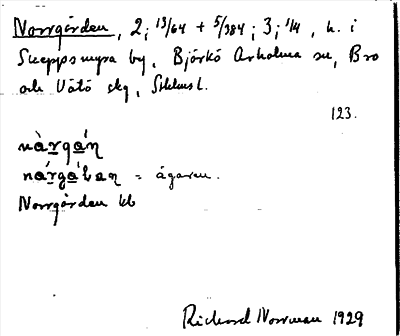 Norrgården, 2; 13/64 + 5/384; 3; 1/4, h. i
Skeppsmyra by, Björkö Arholma sn, Bro
och Vätö skg, Sthlms l.
123.
nàrgán
= ägaren.
Norrgården kb
Richard Norrman 1929